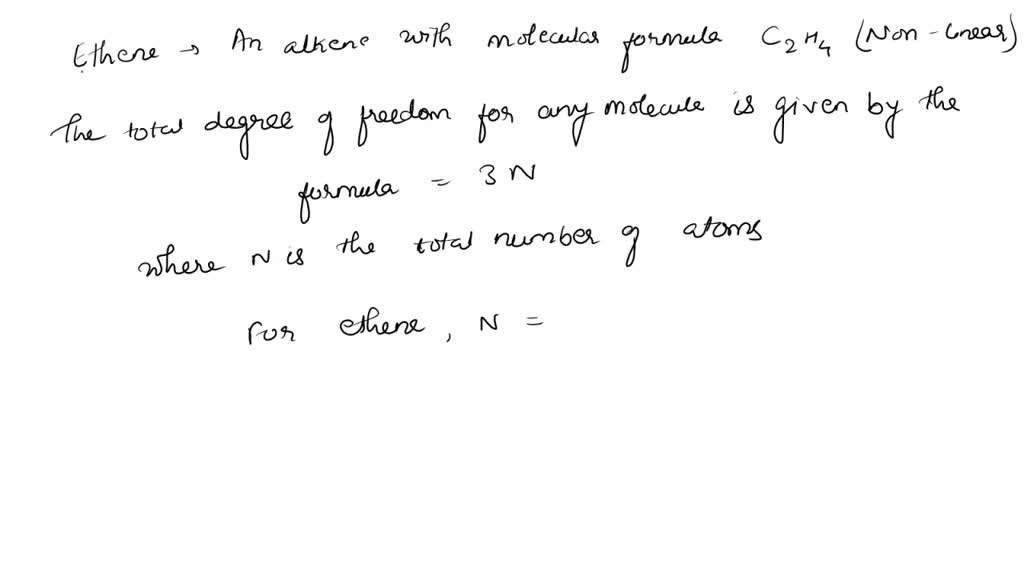 Ethene → An alkene with molecular formula C₂H₄ (Non-linear)
The total degree of freedom for any molecule is given by the
formula = 3N
where N is the total number of atoms
For ethene, N =